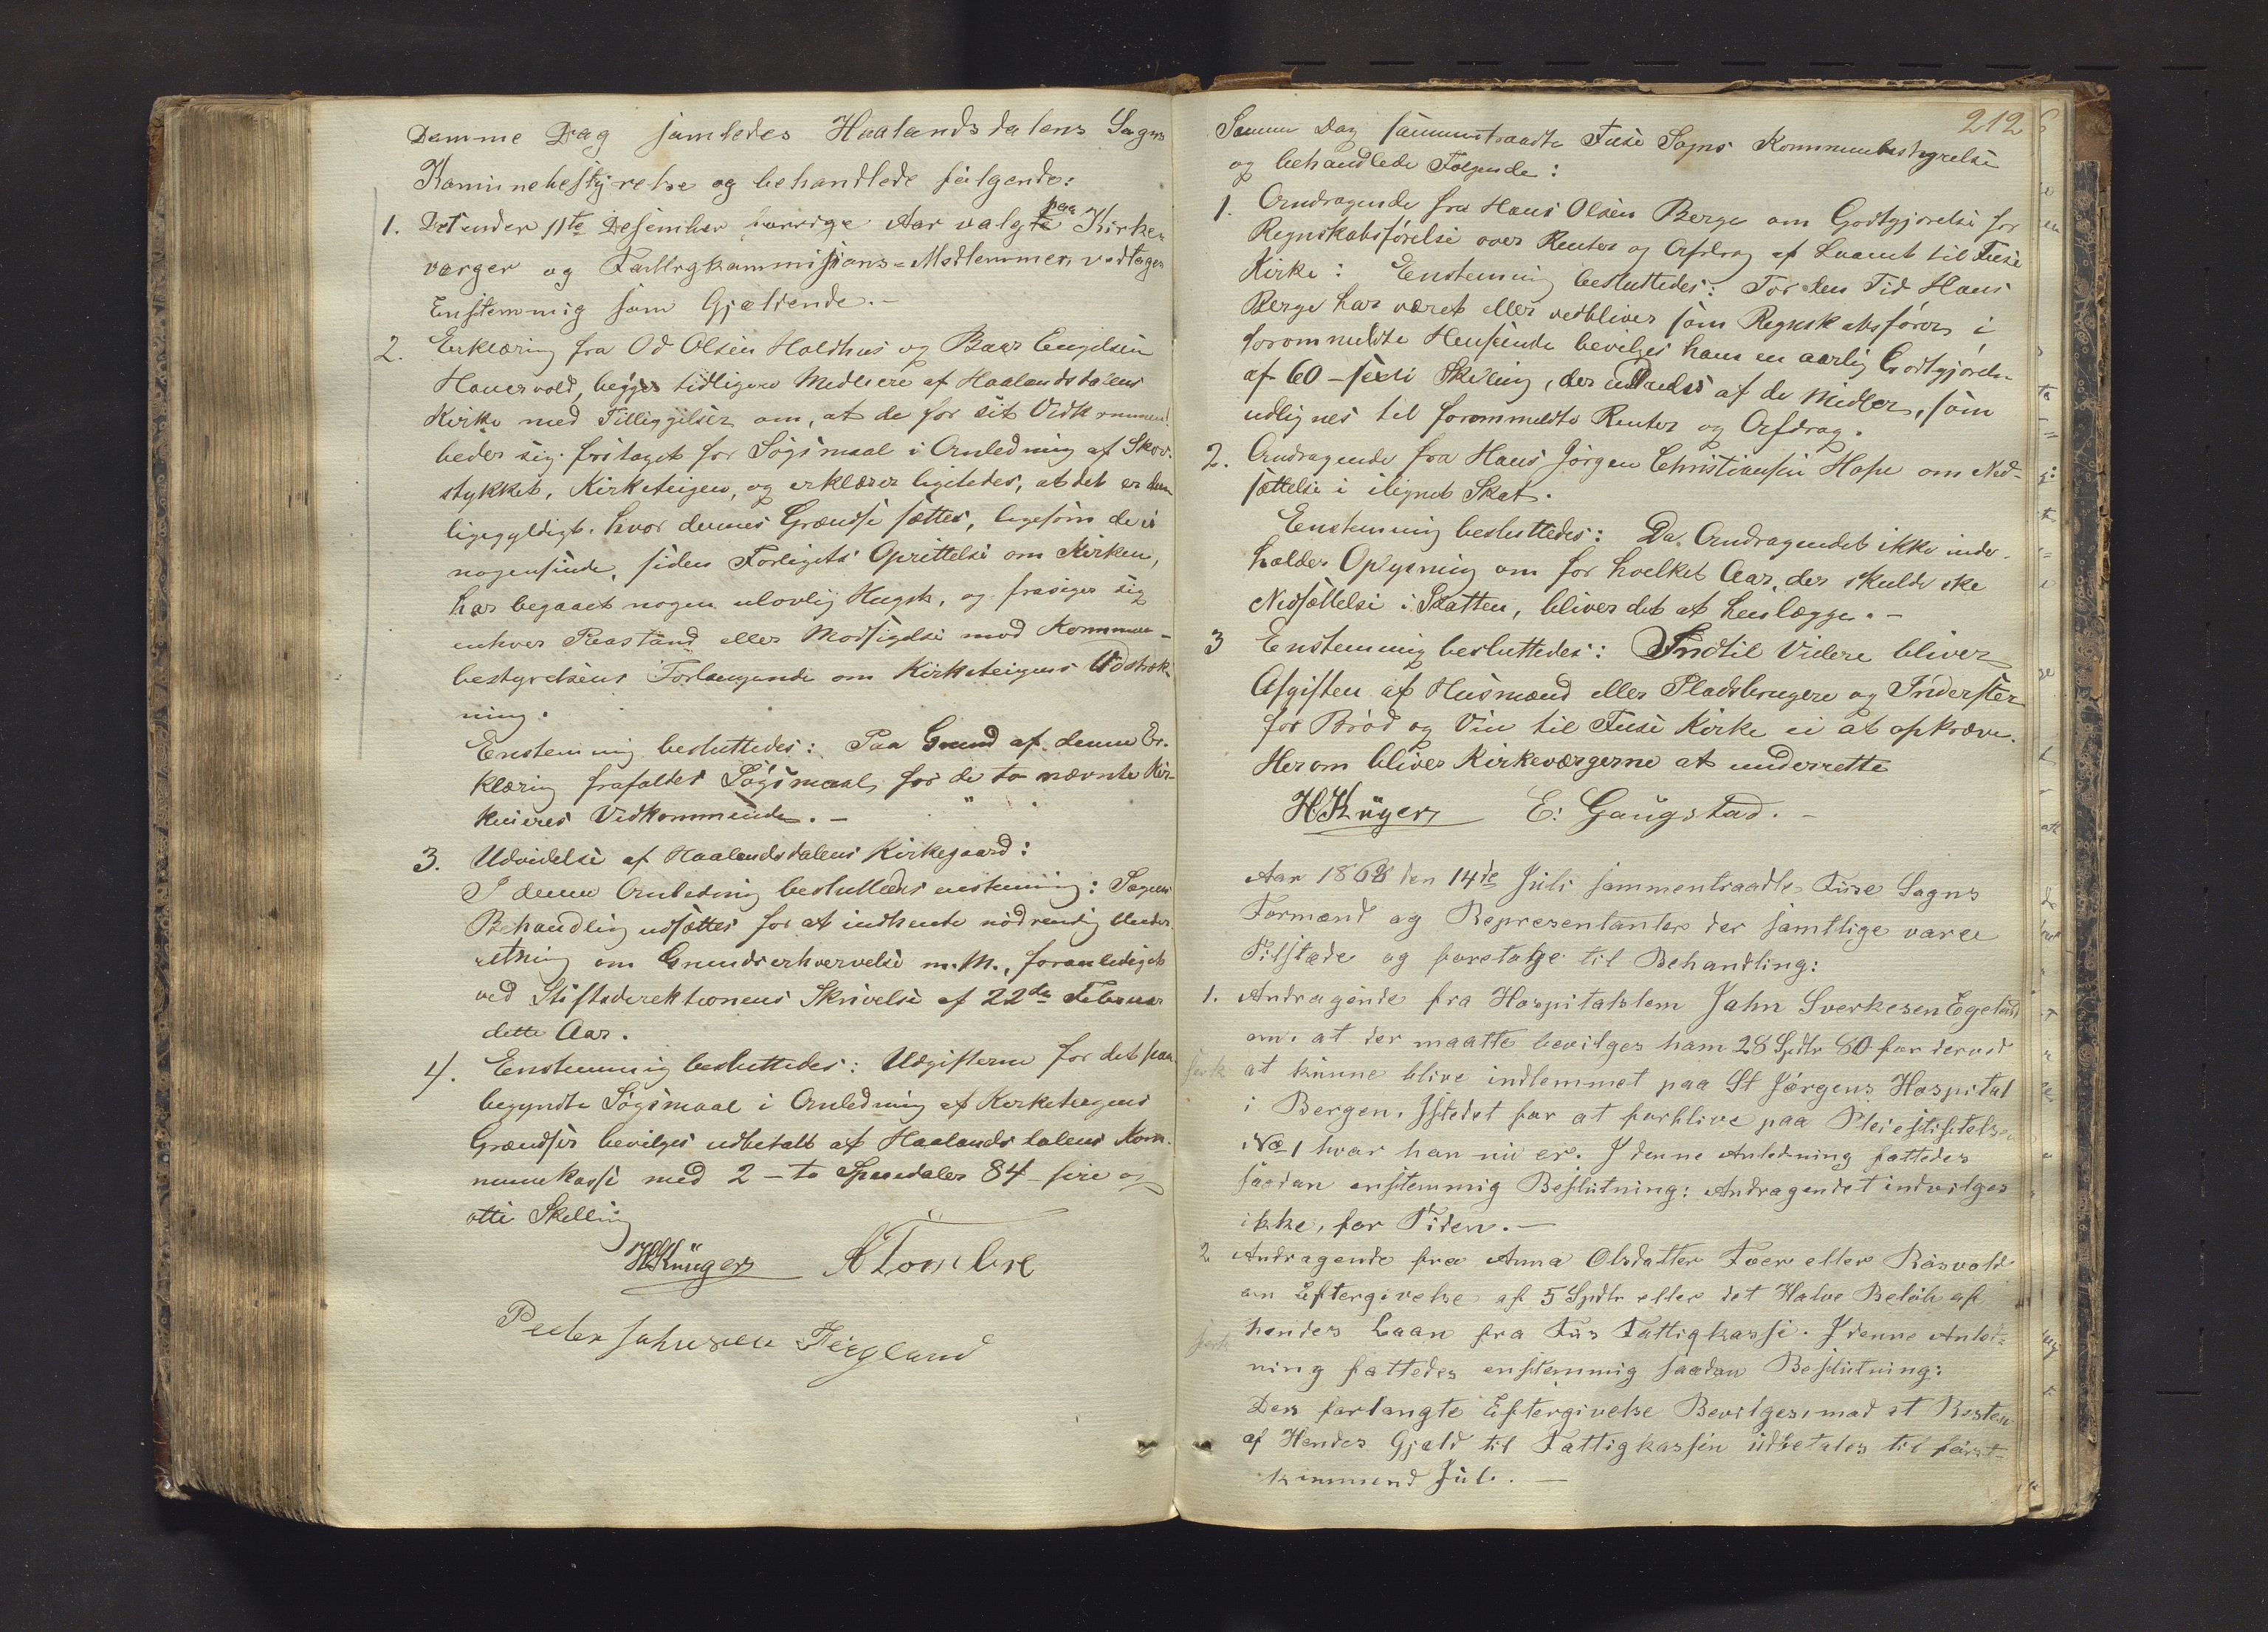 Demme Dag samledes Haalandsdalens Sogns
Kominebestyrelse og behandlede følgende:
1. Det under 11te Desember forrige Aar valgte paa Kirke-
værger og Fattigkommisions-Medlemmer, vedtages
Enstemmig som Gjældende.-
2. Erklæring fra Od Olsen Holdhus og Baar Engelsen
Hauervold, begges tidligere Medeiere af Haalandsdalens
Kirke med Tilliggelser om, at de for sit Vidkommen
beder sig fritaget for Søgsmaal i Anledning af Skov-
stykket, Kirketeigen, og erklærer ligeledes, at det er dem
ligegyldigt, hvor dennes Grændse sættes, ligesom de ei
nogensinde, siden Forligets Oprittelse om Kirken,
har begaaet nogen ulovlig Hugst, og frasiger sig
enhver Paastand eller Modsigelse mod Kommune-
bestyrelsens Forlangende om Kirketeigens Udstræk-
ning.
Enstemmig besluttedes: Paa Grund af denne Er-
klæring frafaldes Søgsmaal, for de to nævnte Kir-
keeieres Vidkommende.-
3. Udvidelse af Haalandsdalens Kirkegaard:
I denne Anledning besluttedes enstemmig: Sagens
Behandling udsættes for at indhente nødvendig Under-
retning om Grundserhvervelse m.M., foranlediget
ved Stiftsdirektionens Skrivelse af 22de Februar
dette Aar.
4. Enstemmig besluttedes: Udgifterne for det paa-
begyndte Søgsmaal i Anledning af Kirketeigens
Grændser bevilges udbetalt af Haalandsdalens Kom-
munekasse med 2 - to Speciedaler 84 - fire og
otti Skelling
HKrüger NTombre
Peder Johnesen Teigland
212
Samme Dag sammentraadte Fuse Sogns Kommunebestyrelse
og behandlede Følgende:
1. Andragende fra Hans Olsen Berge om Godtgjørelse for
Regnskabsførelse over Renter og Afdrag af Laanet til Fuse
Kirke: Enstemmig besluttedes: For den Tid Hans
Berge har været eller vedbliver som Regnskabsfører i
forommeldte Henseende bevilges ham en aarlig Godtgjørelse
af 60 - sexti Skilling, der udredes af de Midler, som
udlignes til forommeldte Renter og Afdrag.
2. Andragende fra Hans Jørgen Christiansen Hope om Ned-
sættelse i ilignet Skat.
Enstemmig besluttedes: Da Andragendet ikke inde-
holder Oplysning om for hvilket Aar, der skulde ske
Nedsættelse i Skatten, bliver det at henlægge.-
3 Enstemmig besluttedes: Indtil Videre bliver
Afgiften af Husmænd eller Pladsbrugere og Inderster
for Brød og Vin til Fuse Kirke ei at opkræve.
Herom bliver Kirkeværgerne at underrette
H.Krüger E: Gaugstad.-
Aar 1868 den 14de Juli sammentraadte Fuse Sogns
Formænd og Representanter der samtlige vare
Tilstæde og foretoge til Behandling:
1. Andragende fra Hospitalslem Jahn Sverkesen Egeland
om at der maatte bevilges ham 28 Spdlr 80 for derved
at kunne blive indlemmet paa St Jørgens Hospital
i Bergen, Istedet for at forblive paa Pleiestiftelsen
No 1 hvor han nu er. I denne Anledning fattedes
saadan enstemmig Beslutning: Andragendet indvilges
ikke, for Tiden.-
2 Andragende fra Anna Olsdatter Foer eller Røsvold
om Eftergivelse af 5 Spdlr eller det Halve Beløb af
hendes Laan fra Fus Fattigkasse. I denne Anled-
ning fattedes enstemmig saadan Beslutning:
Den forlangte Eftergivelse Bevilges, mod at Resten
af Hendes Gjæld til Fattigkassen udbetales til først-
kommend Jul.-